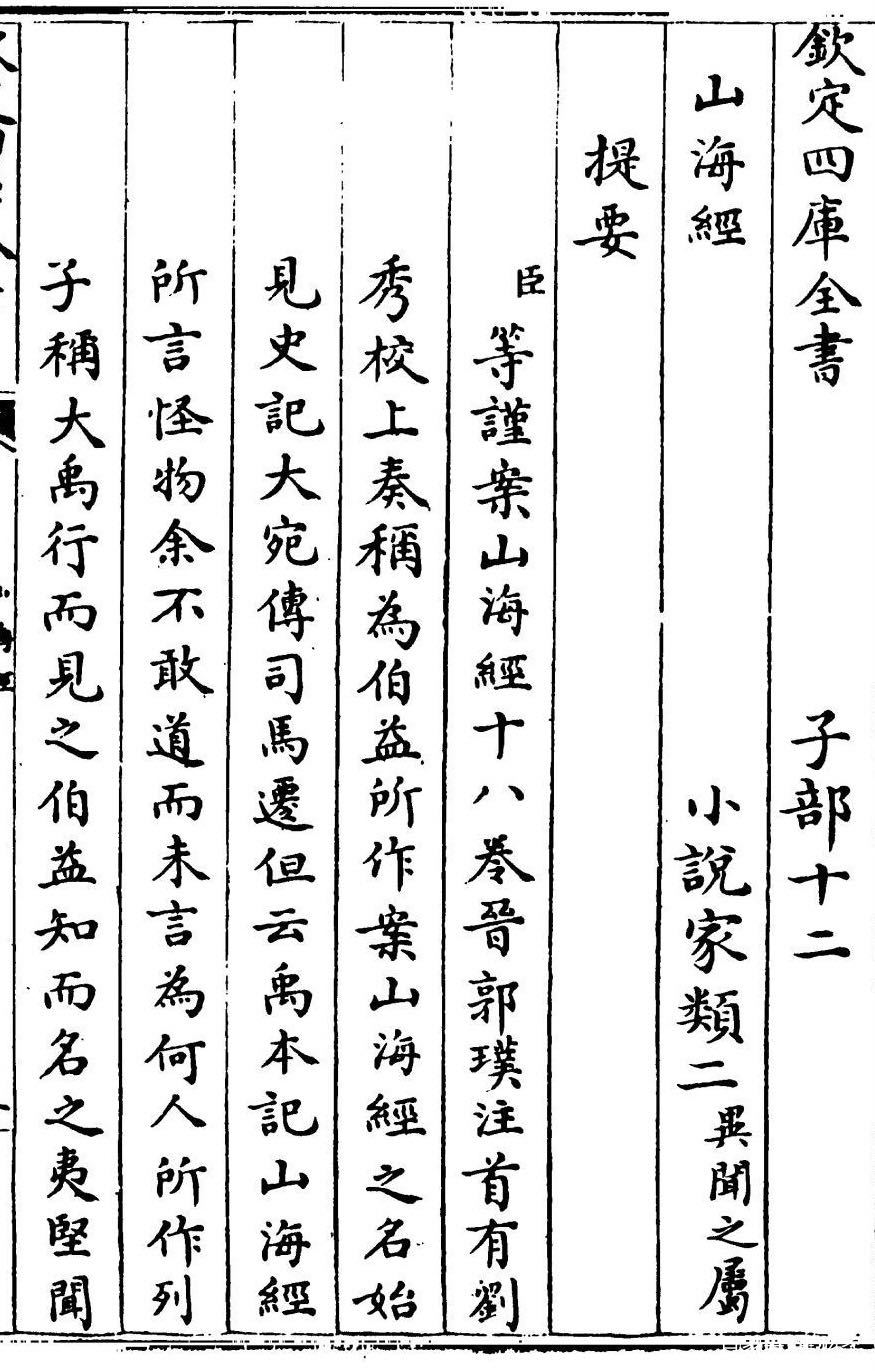 欽定四庫全書 子部十二
山海經 小說家類二異聞之屬
提要
臣等謹案山海經十八卷晉郭璞注首有劉
秀校上奏稱為伯益所作案山海經之名始
見史記大宛傳司馬遷但云禹本記山海經
所言怪物余不敢道而未言為何人所作列
子稱大禹行而見之伯益知而名之夷堅聞